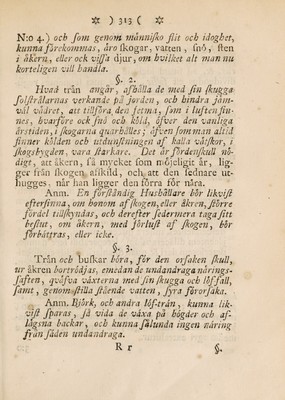 ※ ) 313 ( ※
N:o 4.) och som genom människo flit och idoghet,
kunna förekommas, äro skogar, vatten, snö, sten
i åkern, eller ock vissa djur, om hvilket alt man nu
korteligen vill handla.
§. 2.
Hvad trån angår, afhålla de med sin skugga
solstrålarnas verkande på jorden, och hindra jäm-
väl vädret, att tillföra den fetma, som i luften fin-
nes, hvarföre ock snö och köld, öfver den vanliga
årstiden, i skogarna quarhålles; äfven som man altid
finner kölden och utdunstningen af kalla vätskor, i
skogsbygden, vara starkare. Det är fördenskull nö-
digt, att åkern, så mycket som möjeligit är, lig-
ger från skogen afskild, och att den sednare ut-
hugges, når han ligger den förra för nåra.
Anm. En förståndig Hushållare bör likvist
eftersinna, om honom af skogen, eller åkren, större
fördel tillskyndas, och derefter sedermera taga sitt
beslut, om åkern, med förlust af skogen, bör
förbättras, eller icke.
§. 3.
Trån och buskar böra, för den orsaken skull,
ur åkren bortrödjas, emedan de undandraga närings-
saften, qväfva växterna med sin skugga och löffall,
samt, genom stilla stående vatten, syra förorsaka.
Anm. Björk, och andra löf-trån, kunna lik-
vist sparas, så vida de växa på högder och af-
lägsna backar, och kunna sålunda ingen näring
från säden undandraga.
R r §.